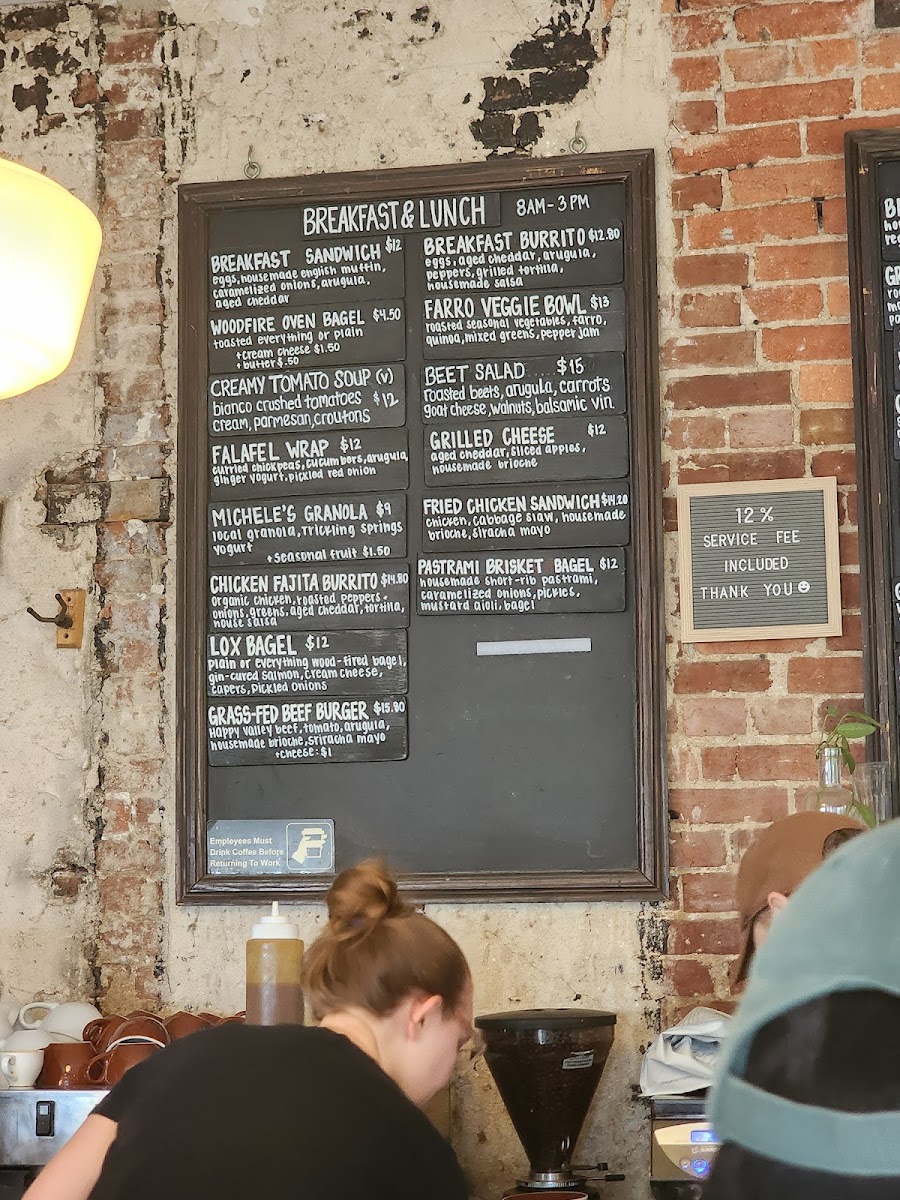 BREAKFAST & LUNCH 8AM-3PM
BREAKFAST SANDWICH $12
eggs, housemade english muffin,
caramelized onions, arugula,
aged cheddar
WOODFIRE OVEN BAGEL $4.50
toasted everything or plain
+cream cheese $1.50
+butter $.50
CREAMY TOMATO SOUP (V)
bianco crushed tomatoes $12
cream, parmesan, croutons
FALAFEL WRAP $12
curried chickpeas, cucumbers, arugula,
ginger yogurt, pickled red onion
MICHELE'S GRANOLA $9
local granola, Trickling Springs
yogurt
+seasonal fruit $1.50
CHICKEN FAJITA BURRITO $14.80
organic chicken, roasted peppers +
onions, greens, aged cheddar, tortilla,
house salsa
LOX BAGEL $12
plain or everything wood-fired bagel,
gin-cured salmon, cream cheese,
capers, pickled onions
GRASS-FED BEEF BURGER $15.80
Happy Valley beef, tomato, arugula,
housemade brioche, sriracha mayo
+cheese: $1
BREAKFAST BURRITO $12.80
eggs, aged cheddar, arugula,
peppers, grilled tortilla,
housemade salsa
FARRO VEGGIE BOWL $13
roasted seasonal vegetables, farro,
quinoa, mixed greens, pepper jam
BEET SALAD .... $15
roasted beets, arugula, carrots
goat cheese, walnuts, balsamic vin.
GRILLED CHEESE $12
aged cheddar, sliced apples,
housemade brioche
FRIED CHICKEN SANDWICH $14.20
chicken, cabbage slaw, housemade
brioche, siracha mayo
PASTRAMI BRISKET BAGEL $12
housemade short-rib pastrami,
caramelized onions, pickles,
mustard aioli, bagel
Employees Must
Drink Coffee Before
Returning To Work
12%
SERVICE FEE
INCLUDED
THANK YOU☻